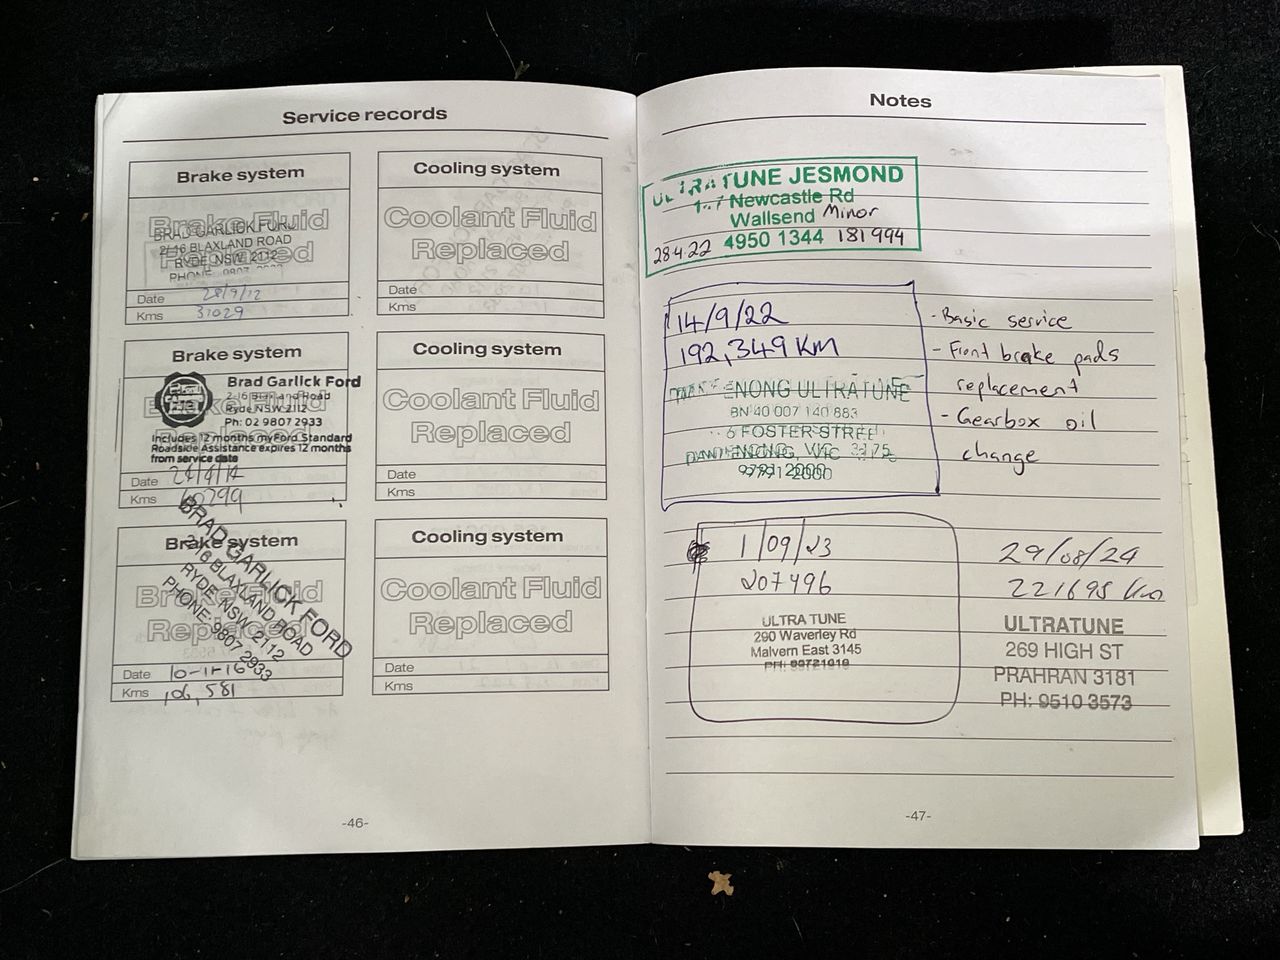 Service records
Brake system
Brake Fluid
Replaced
BRAD GARLICK FORD
2/16 BLAXLAND ROAD
RYDE NSW 2112
PHONE 9807 2933
Date 28/9/12
Kms 31029
Brake system
Brad Garlick Ford
2-16 Blaxland Road
Ryde NSW 2112
Ph: 02 9807 2933
Includes 12 months myFord Standard
Roadside Assistance expires 12 months
from service date
Date
Kms 60299
Brake system
Brake Fluid
Replaced
BRAD GARLICK FORD
2/16 BLAXLAND ROAD
RYDE NSW 2112
PHONE 9807 2933
Date 10-11-16
Kms 106,581
Cooling system
Coolant Fluid
Replaced
Date
Kms
Cooling system
Coolant Fluid
Replaced
Date
Kms
Cooling system
Coolant Fluid
Replaced
Date
Kms
-46-
Notes
ULTRATUNE JESMOND
Newcastle Rd
Wallsend Minor
28.4.22 4950 1344 181994
14/9/22
192,349 KM
DANDENONG ULTRATUNE
BN 40 007 140 883
6 FOSTER STREET
DANDENONG, VIC 3175
9791 2000
- Basic service
- Front brake pads
replacement
- Gearbox oil
change
1/09/23
207496
ULTRA TUNE
290 Waverley Rd
Malvern East 3145
PH: 95721919
29/08/24
221695 km
ULTRATUNE
269 HIGH ST
PRAHRAN 3181
PH: 9510 3573
-47-